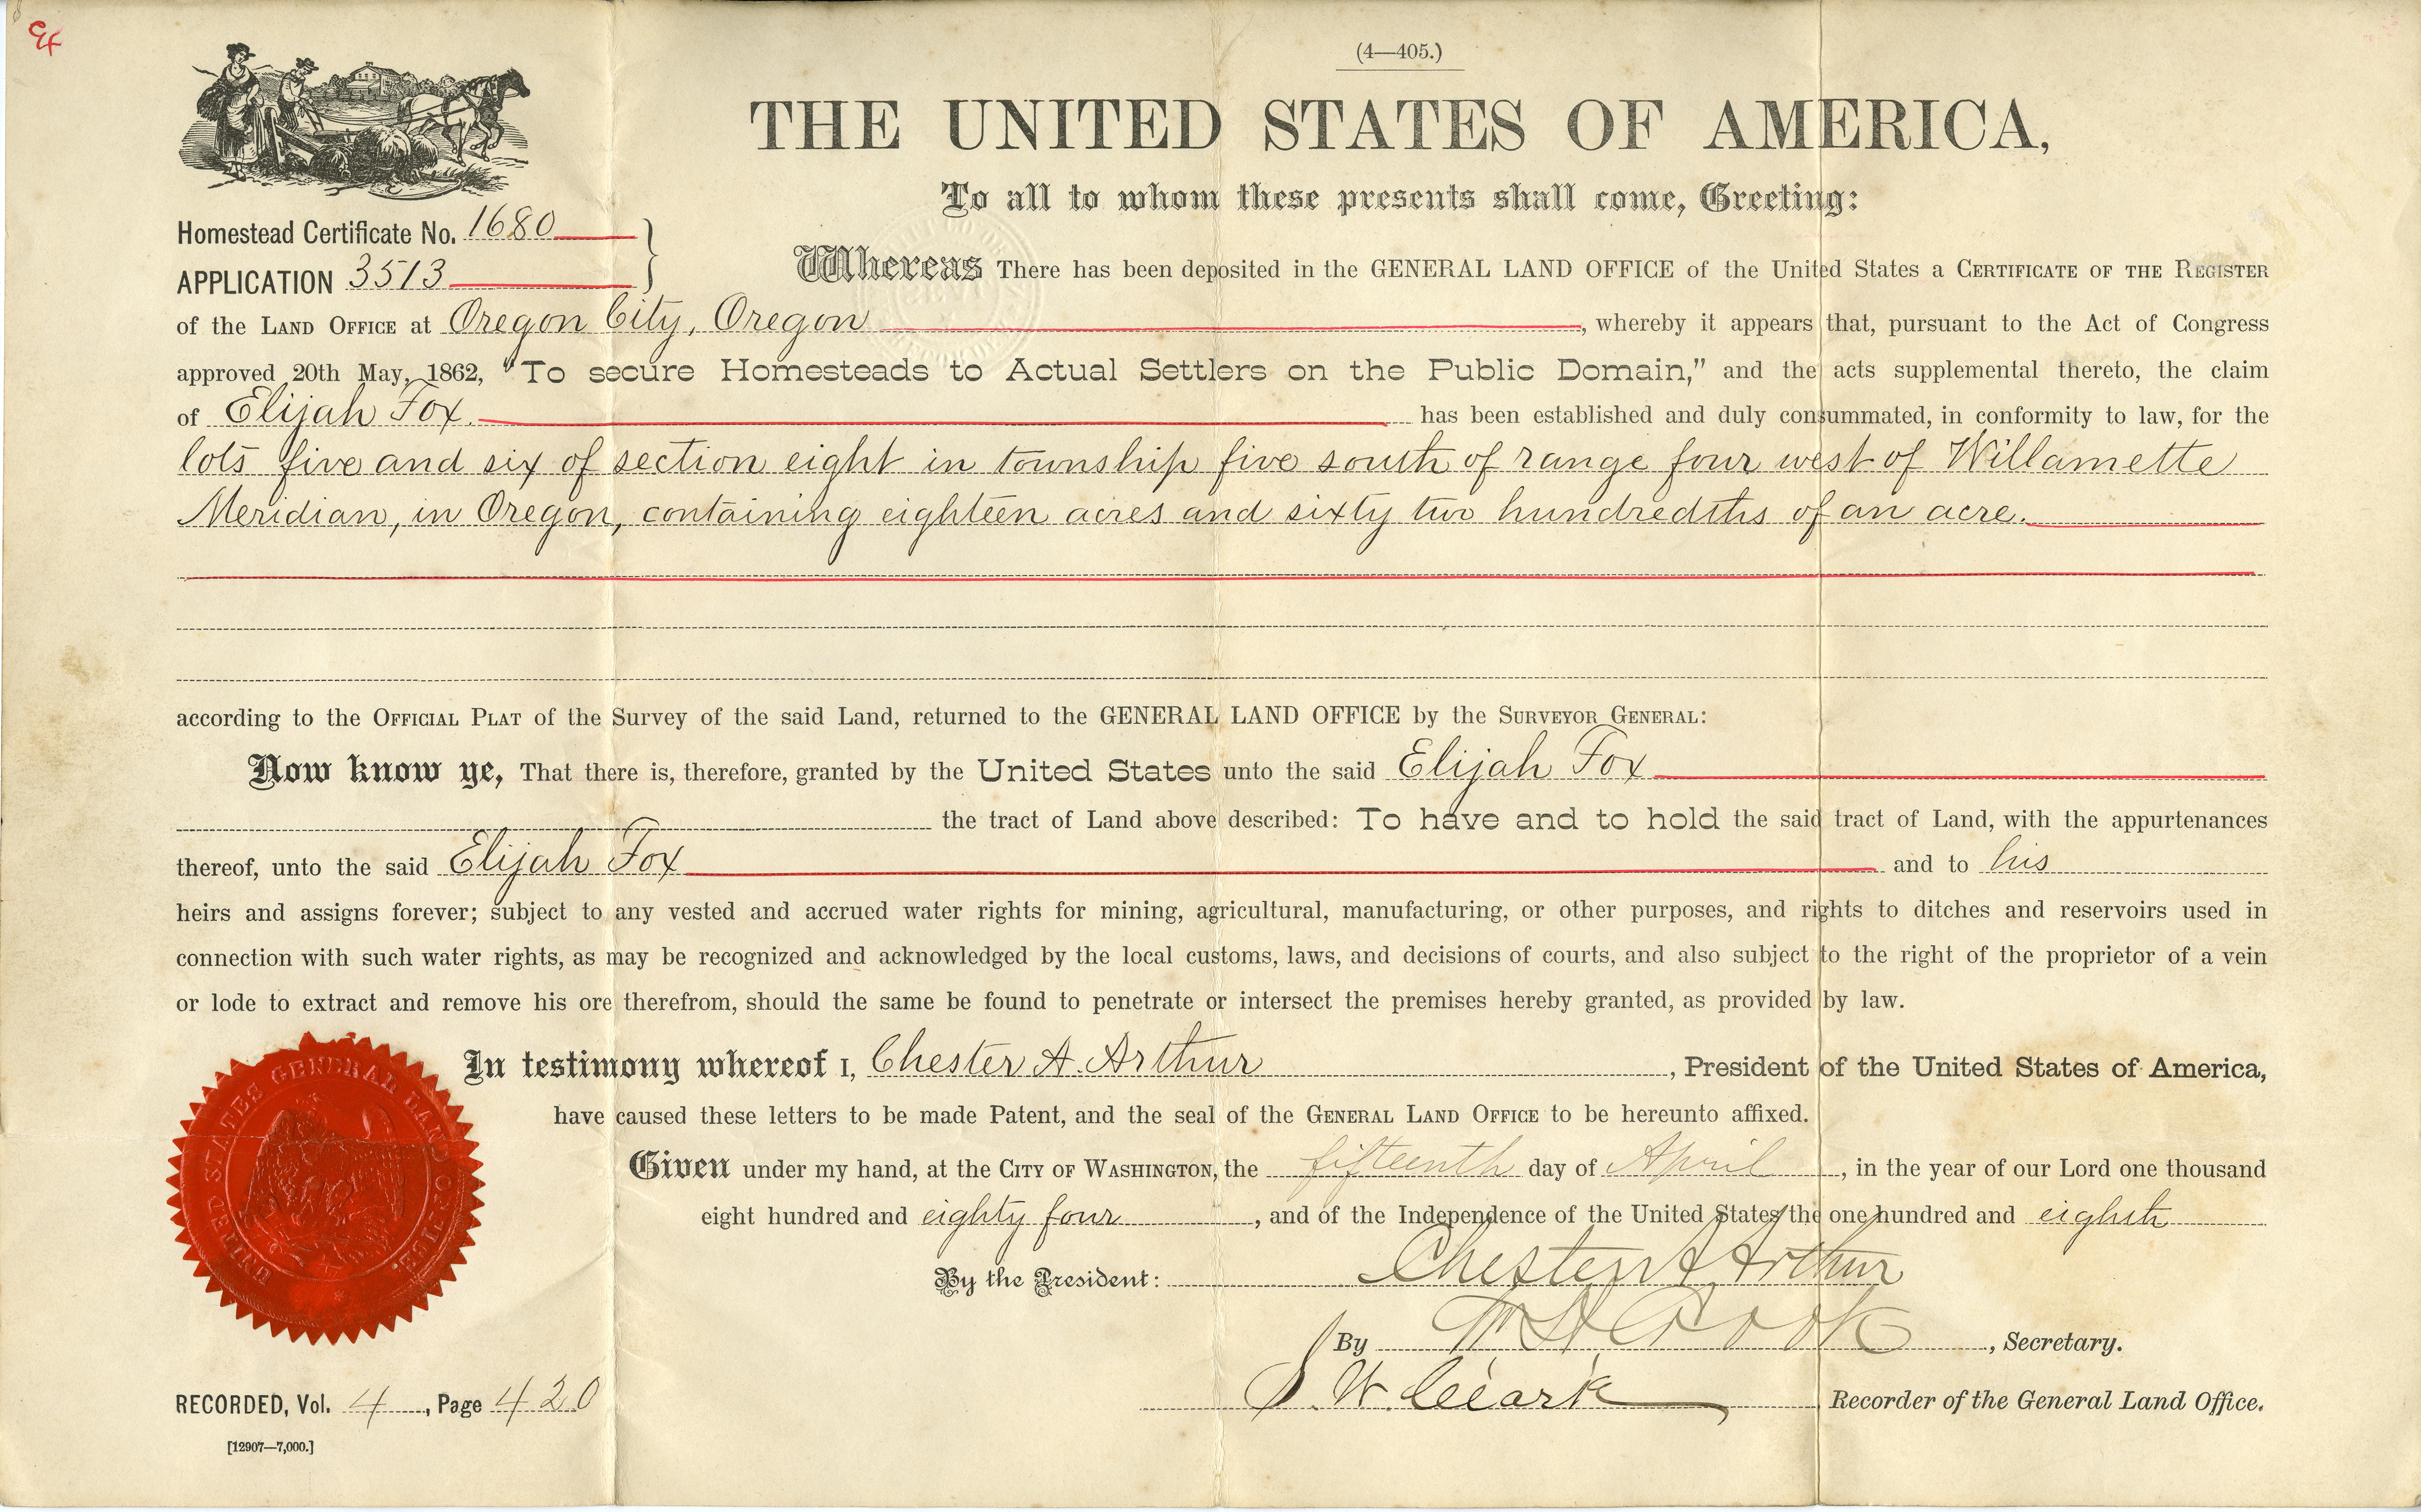 (4—405.)
THE UNITED STATES OF AMERICA,
To all to whom these presents shall come, Greeting:
Homestead Certificate No. 1680
APPLICATION 3513
Whereas There has been deposited in the GENERAL LAND OFFICE of the United States a CERTIFICATE OF THE REGISTER
of the LAND OFFICE at Oregon City, Oregon, whereby it appears that, pursuant to the Act of Congress
approved 20th May, 1862, "To secure Homesteads to Actual Settlers on the Public Domain," and the acts supplemental thereto, the claim
of Elijah Fox. has been established and duly consummated, in conformity to law, for the
lots five and six of section eight in township five south of range four west of Willamette
Meridian, in Oregon, containing eighteen acres and sixty two hundredths of an acre.
according to the OFFICIAL PLAT of the Survey of the said Land, returned to the GENERAL LAND OFFICE by the SURVEYOR GENERAL:
Now know ye, That there is, therefore, granted by the United States unto the said Elijah Fox
the tract of Land above described: To have and to hold the said tract of Land, with the appurtenances
thereof, unto the said Elijah Fox and to his
heirs and assigns forever; subject to any vested and accrued water rights for mining, agricultural, manufacturing, or other purposes, and rights to ditches and reservoirs used in
connection with such water rights, as may be recognized and acknowledged by the local customs, laws, and decisions of courts, and also subject to the right of the proprietor of a vein
or lode to extract and remove his ore therefrom, should the same be found to penetrate or intersect the premises hereby granted, as provided by law.
In testimony whereof I, Chester A. Arthur, President of the United States of America,
have caused these letters to be made Patent, and the seal of the GENERAL LAND OFFICE to be hereunto affixed.
Given under my hand, at the CITY OF WASHINGTON, the fifteenth day of April, in the year of our Lord one thousand
eight hundred and eighty four, and of the Independence of the United States the one hundred and eighth
By the President: Chester A Arthur
By W H Crook, Secretary.
S. W. Clark Recorder of the General Land Office.
UNITED STATES GENERAL LAND OFFICE.
RECORDED, Vol. 4, Page 420
[12907—7,000.]